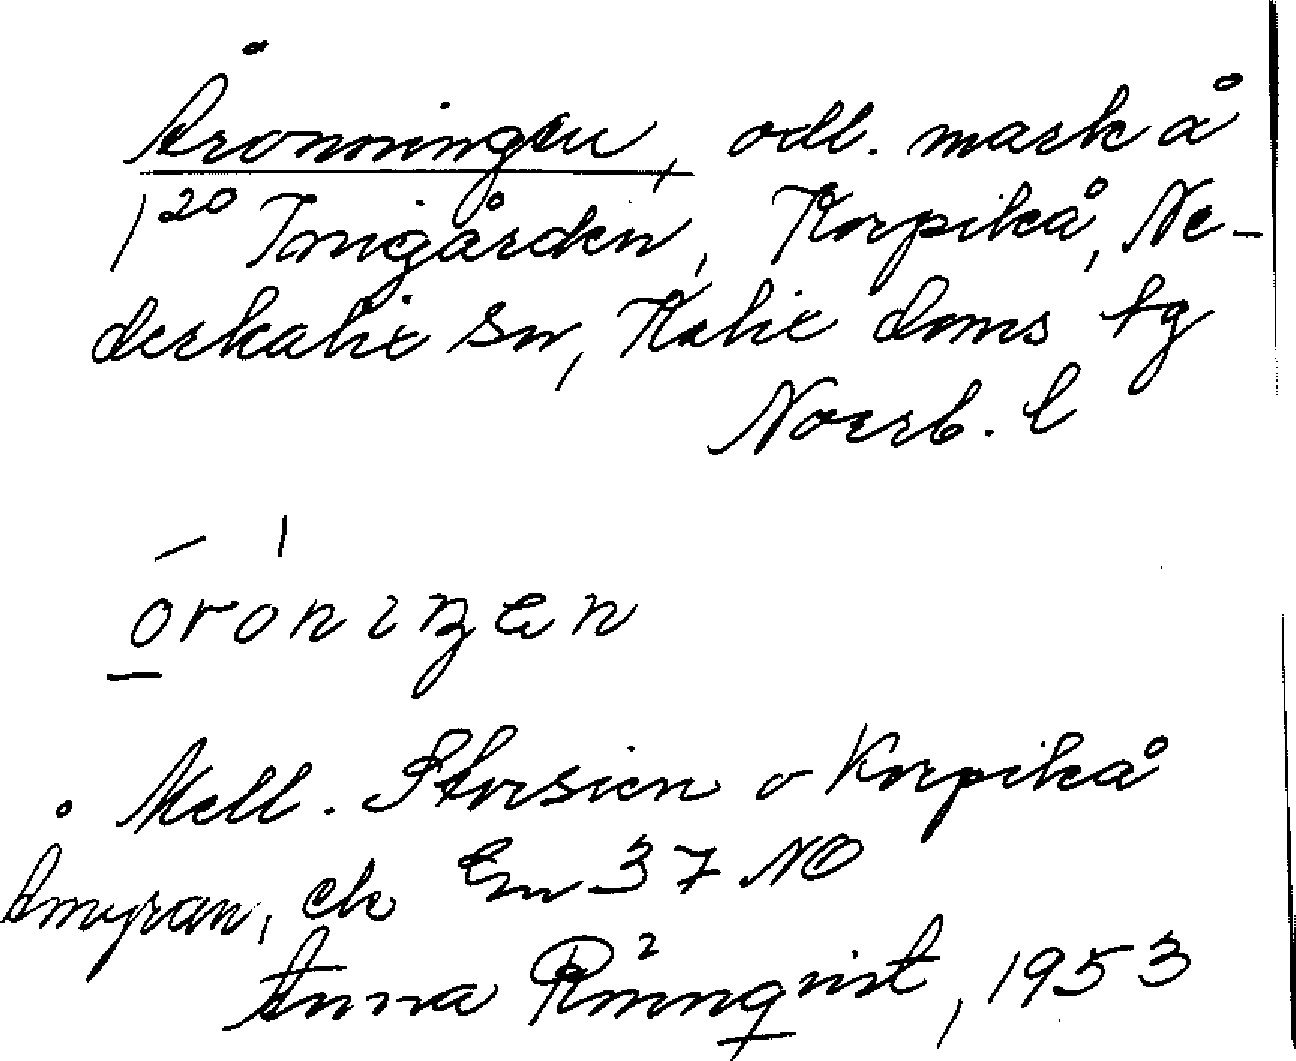 Åronningen, odl. mark å
1²⁰ Tomigården, Korpikå, Ne-
derkalix sn, Kalix doms tg
Norrb. l
óróningen
Mell. Storsien o Korpikå
Åmyran, ek Em 37 NO
Anna Rönnqvist, 1953